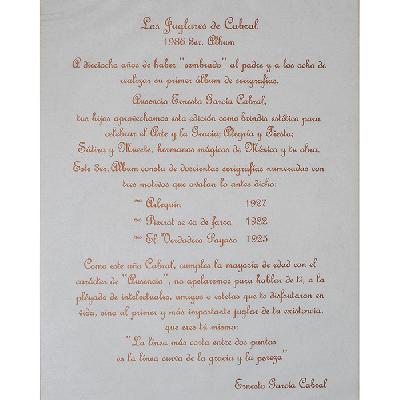 Los Juglares de Cabral
1986 3er. Album
A dieciocho años de haber "sembrado" al padre y a los ocho de
realizar su primer álbum de serigrafías.
Ausencio Ernesto García Cabral,
tus hijos aprovechamos esta edición como brindis estético para
celebrar al Arte y la Gracia; Alegría y Fiesta;
Sátira y Muerte, hermanas mágicas de México y tu obra.
Este 3er. Album consta de doscientas serigrafías numeradas con
tres motivos que avalan lo antes dicho:
~ Arlequín 1927
~ Pierrot se va de farra 1922
~ El Verdadero Payaso 1925
Como este año Cabral, cumples la mayoría de edad con el
carácter de "Ausencio", no apelaremos para hablar de tí, a la
pléyade de intelectuales, amigos e istetas que te disfrutaron en
vida, sino al primer y más importante juglar de tu existencia,
que eres tú mismo:
"La línea más corta entre dos puntos
es la línea curva de la gracia y la pereza"
Ernesto García Cabral